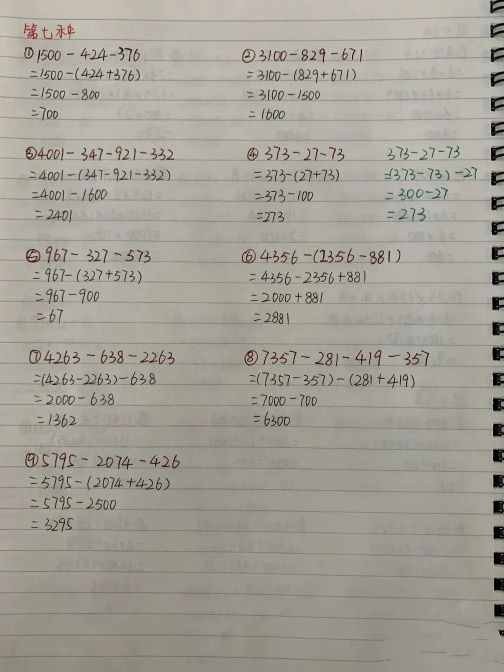 第七种
①1500-424-376
=1500-(424+376)
=1500-800
=700
②3100-829-671
=3100-(829+671)
=3100-1500
=1600
③4001-347-921-332
=4001-(347-921-332)
=4001-1600
=2401
④373-27-73
=373-(27+73)
=373-100
=273
373-27-73
=(373-73)-27
=300-27
=273
⑤967-327-573
=967-(327+573)
=967-900
=67
⑥4356-(2356-881)
=4356-2356+881
=2000+881
=2881
⑦4263-638-2263
=(4263-2263)-638
=2000-638
=1362
⑧7357-281-419-357
=(7357-357)-(281+419)
=7000-700
=6300
⑨5795-2074-426
=5795-(2074+426)
=5795-2500
=3295